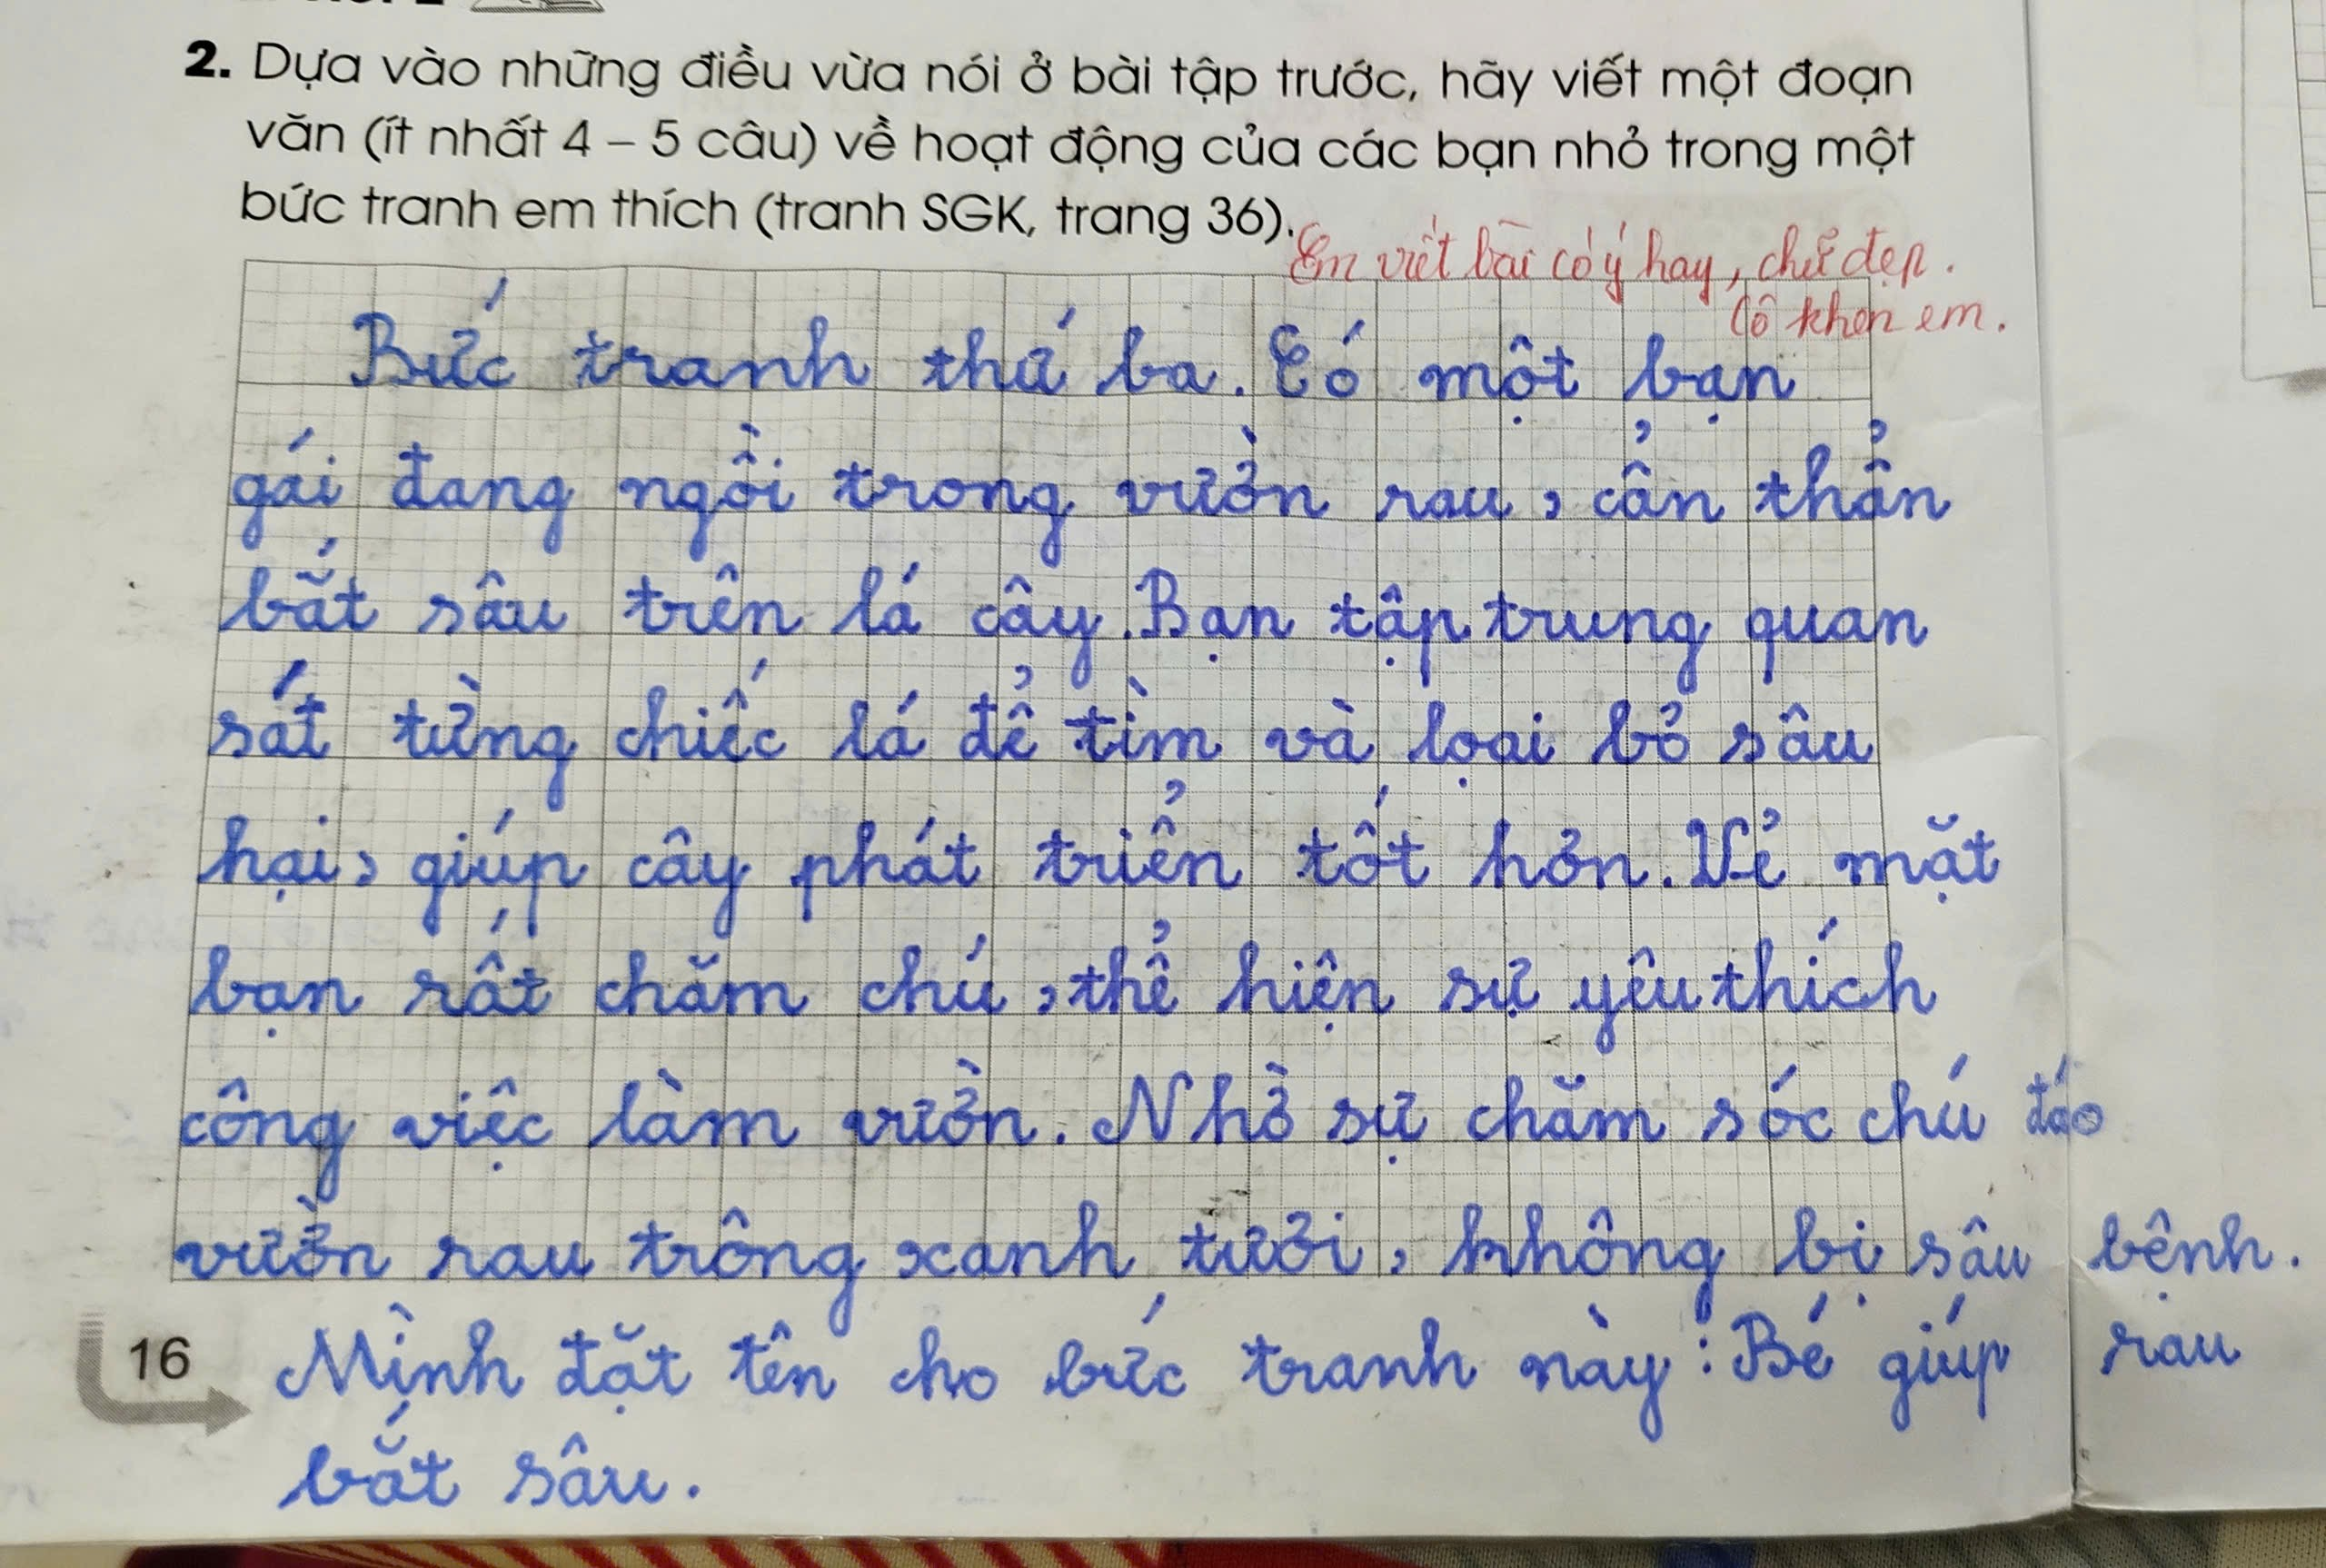 2. Dựa vào những điều vừa nói ở bài tập trước, hãy viết một đoạn
văn (ít nhất 4 – 5 câu) về hoạt động của các bạn nhỏ trong một
bức tranh em thích (tranh SGK, trang 36).
Em viết bài có ý hay, chữ đẹp.
Cô khen em.
Bức tranh thứ ba. Có một bạn
gái đang ngồi trong vườn rau, cẩn thẩn
bắt sâu trên lá cây. Bạn tập trung quan
sát từng chiếc lá để tìm và loại bỏ sâu
hại, giúp cây phát triển tốt hơn. Vẻ mặt
bạn rất chăm chú, thể hiện sự yêu thích
công việc làm vườn. Nhờ sự chăm sóc chú đáo
vườn rau trông xanh tươi, không bị sâu bệnh.
Mình đặt tên cho bức tranh này: Bé giúp rau
bắt sâu.
16